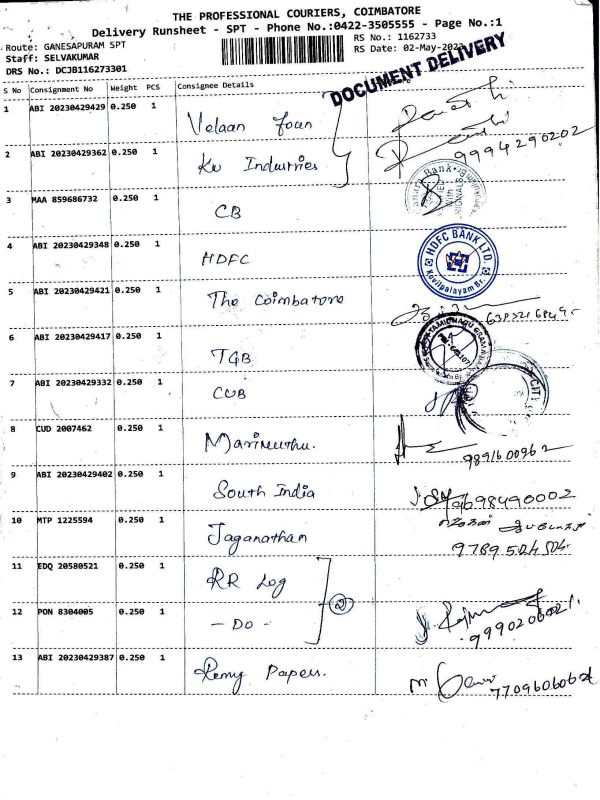 THE PROFESSIONAL COURIERS, COIMBATORE
Delivery Runsheet - SPT - Phone No.:0422-3505555 - Page No.:1
Route: GANESAPURAM SPT
RS No.: 1162733
Staff: SELVAKUMAR
RS Date: 02-May-2023
DRS No.: DCJB116273301
DOCUMENT DELIVERY
S No Consignment No Weight PCS Consignee Details
1 ABI 20230429429 0.250 1 Velaan
2 ABI 20230429362 0.250 1 KV Industries 9994290202
3 MAA 859686732 0.250 1 CB
4 ABI 20230429348 0.250 1 HDFC
HDFC BANK LTD.
Kovilpalayam Br.
5 ABI 20230429421 0.250 1 The Coimbatore
6 ABI 20230429417 0.250 1 TGB
7 ABI 20230429332 0.250 1 CUB
8 CUD 2007462 0.250 1 Marimuthu. 989160096 2
9 ABI 20230429402 0.250 1 South India 9698490002
10 MTP 1225594 0.250 1 Jaganathan
9789504506.
11 EDQ 20580521 0.250 1 RR Log
2
12 PON 8304005 0.250 1 - DO -
13 ABI 20230429387 0.250 1 Remy Papers.